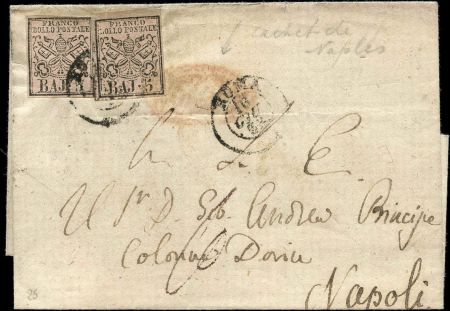 FRANCO
BOLLO POSTALE
BAJ.
FRANCO
BOLLO POSTALE
BAJ. 5
cachet de
Naples
ROMA
A S. E.
D. Andrea Principe
Colonna Doria
Napoli